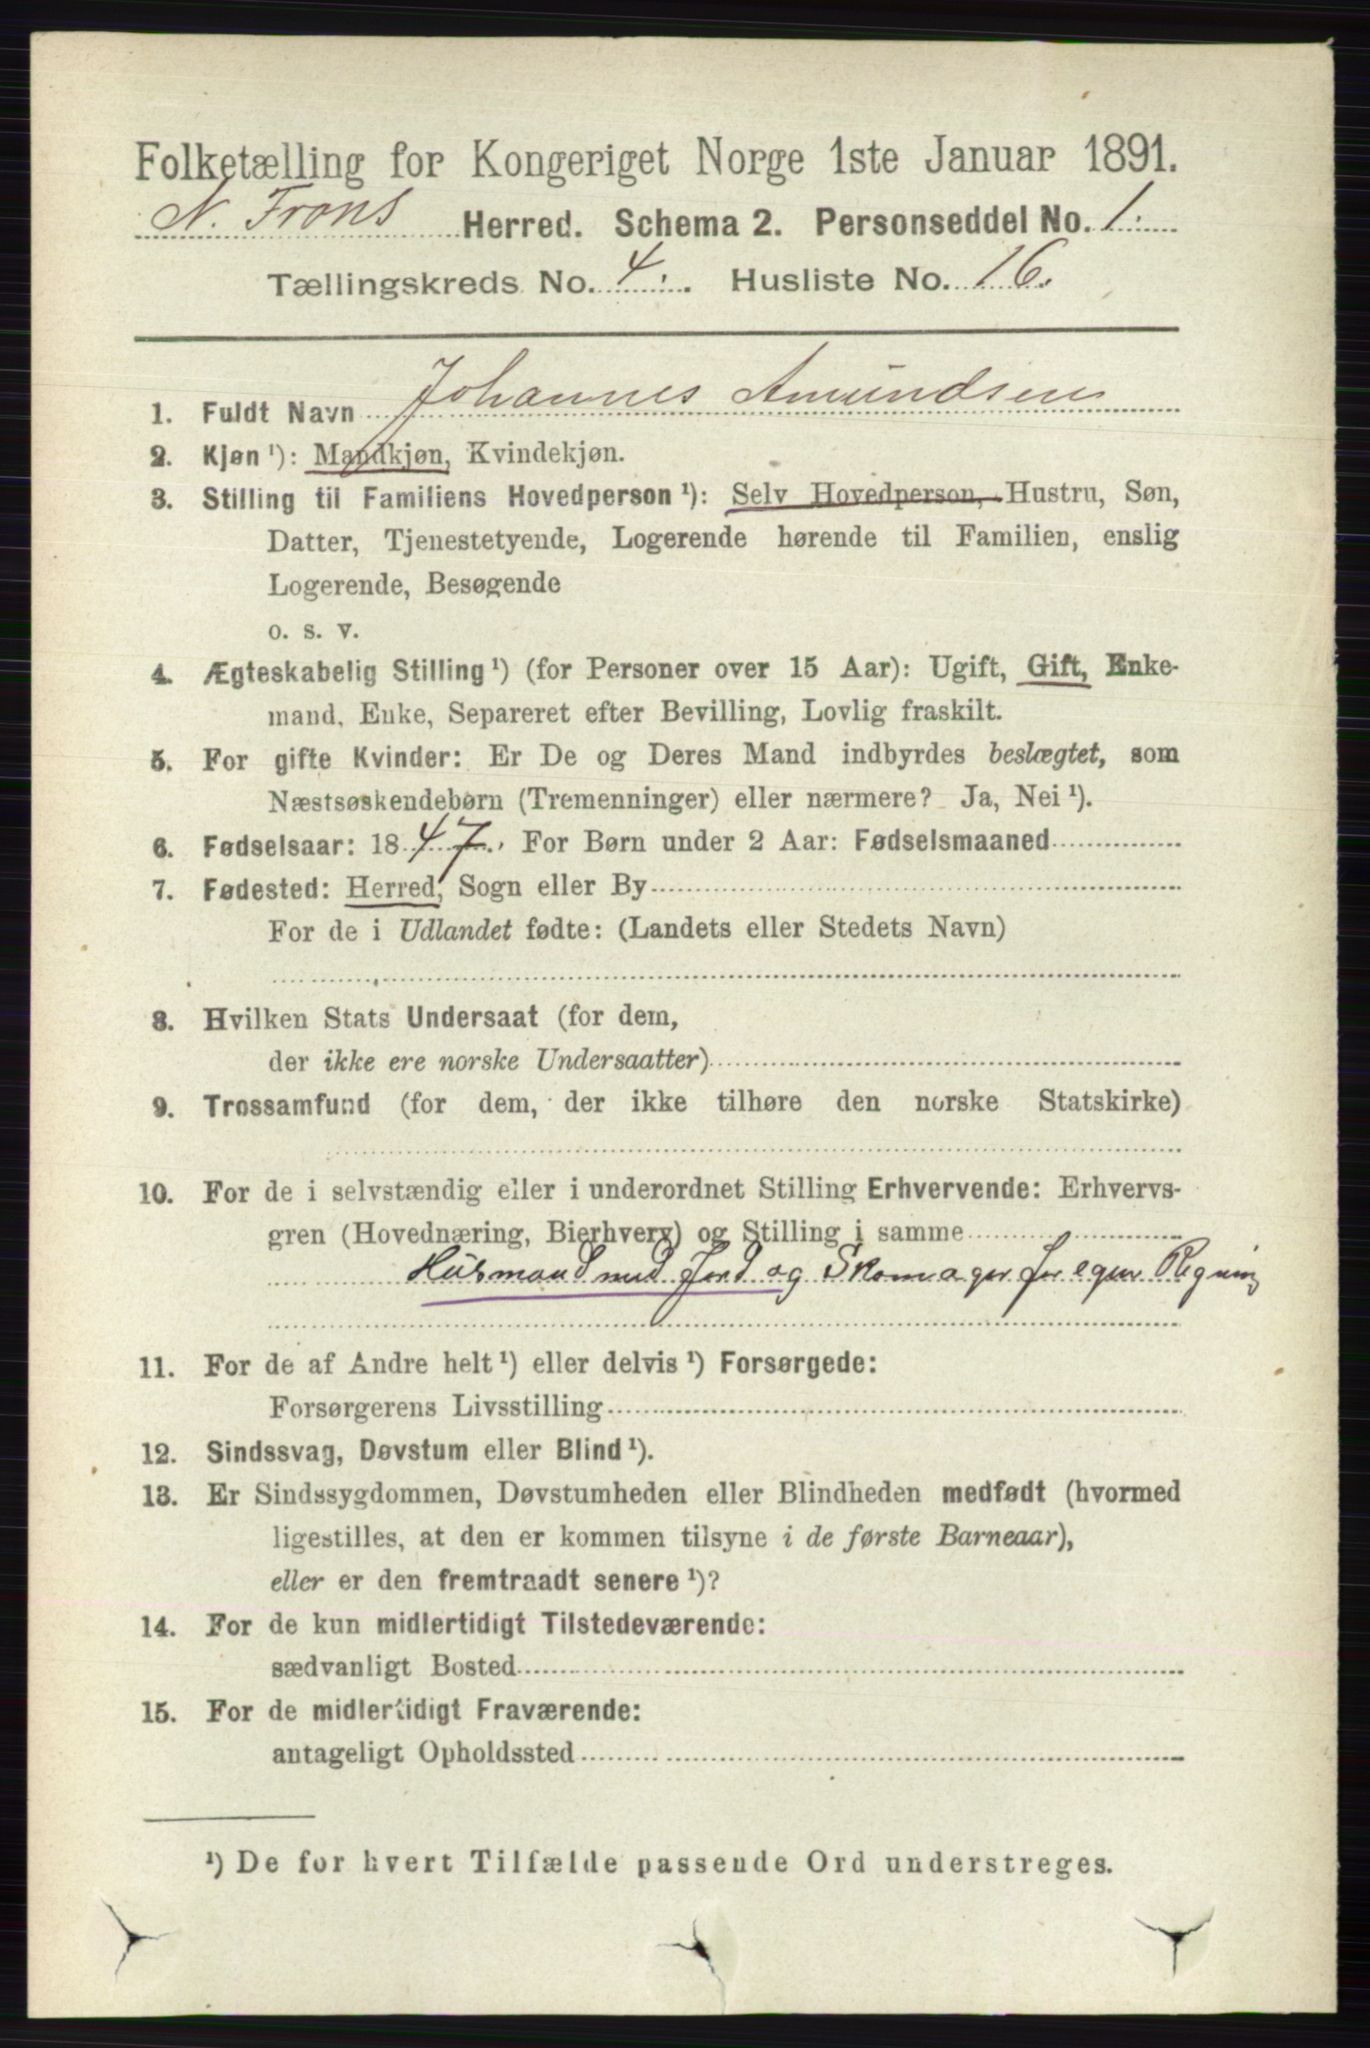 Folketælling for Kongeriget Norge 1ste Januar 1891.
N. Frons Herred. Schema 2. Personseddel No. 1.
Tællingskreds No. 4. Husliste No. 16.
1. Fuldt Navn Johannes Amundsen
2. Kjøn ¹): Mandkjøn, Kvindekjøn.
3. Stilling til Familiens Hovedperson ¹): Selv Hovedperson, Hustru, Søn,
Datter, Tjenestetyende, Logerende hørende til Familien, enslig
Logerende, Besøgende
o. s. v.
4. Ægteskabelig Stilling ¹) (for Personer over 15 Aar): Ugift, Gift, Enke-
mand, Enke, Separeret efter Bevilling, Lovlig fraskilt.
5. For gifte Kvinder: Er De og Deres Mand indbyrdes beslægtet, som
Næstsøskendebørn (Tremenninger) eller nærmere? Ja, Nei ¹).
6. Fødselsaar: 1847. For Børn under 2 Aar: Fødselsmaaned
7. Fødested: Herred, Sogn eller By
For de i Udlandet fødte: (Landets eller Stedets Navn)
8. Hvilken Stats Undersaat (for dem,
der ikke ere norske Undersaatter)
9. Trossamfund (for dem, der ikke tilhøre den norske Statskirke)
10. For de i selvstændig eller i underordnet Stilling Erhvervende: Erhvervs-
gren (Hovednæring, Bierhverv) og Stilling i samme
Husmand med Jord og Skomager for egen Regning
11. For de af Andre helt ¹) eller delvis ¹) Forsørgede:
Forsørgerens Livsstilling
12. Sindssvag, Døvstum eller Blind ¹).
13. Er Sindssygdommen, Døvstumheden eller Blindheden medfødt (hvormed
ligestilles, at den er kommen tilsyne i de første Barneaar),
eller er den fremtraadt senere ¹)?
14. For de kun midlertidigt Tilstedeværende:
sædvanligt Bosted
15. For de midlertidigt Fraværende:
antageligt Opholdssted
¹) De for hvert Tilfælde passende Ord understreges.